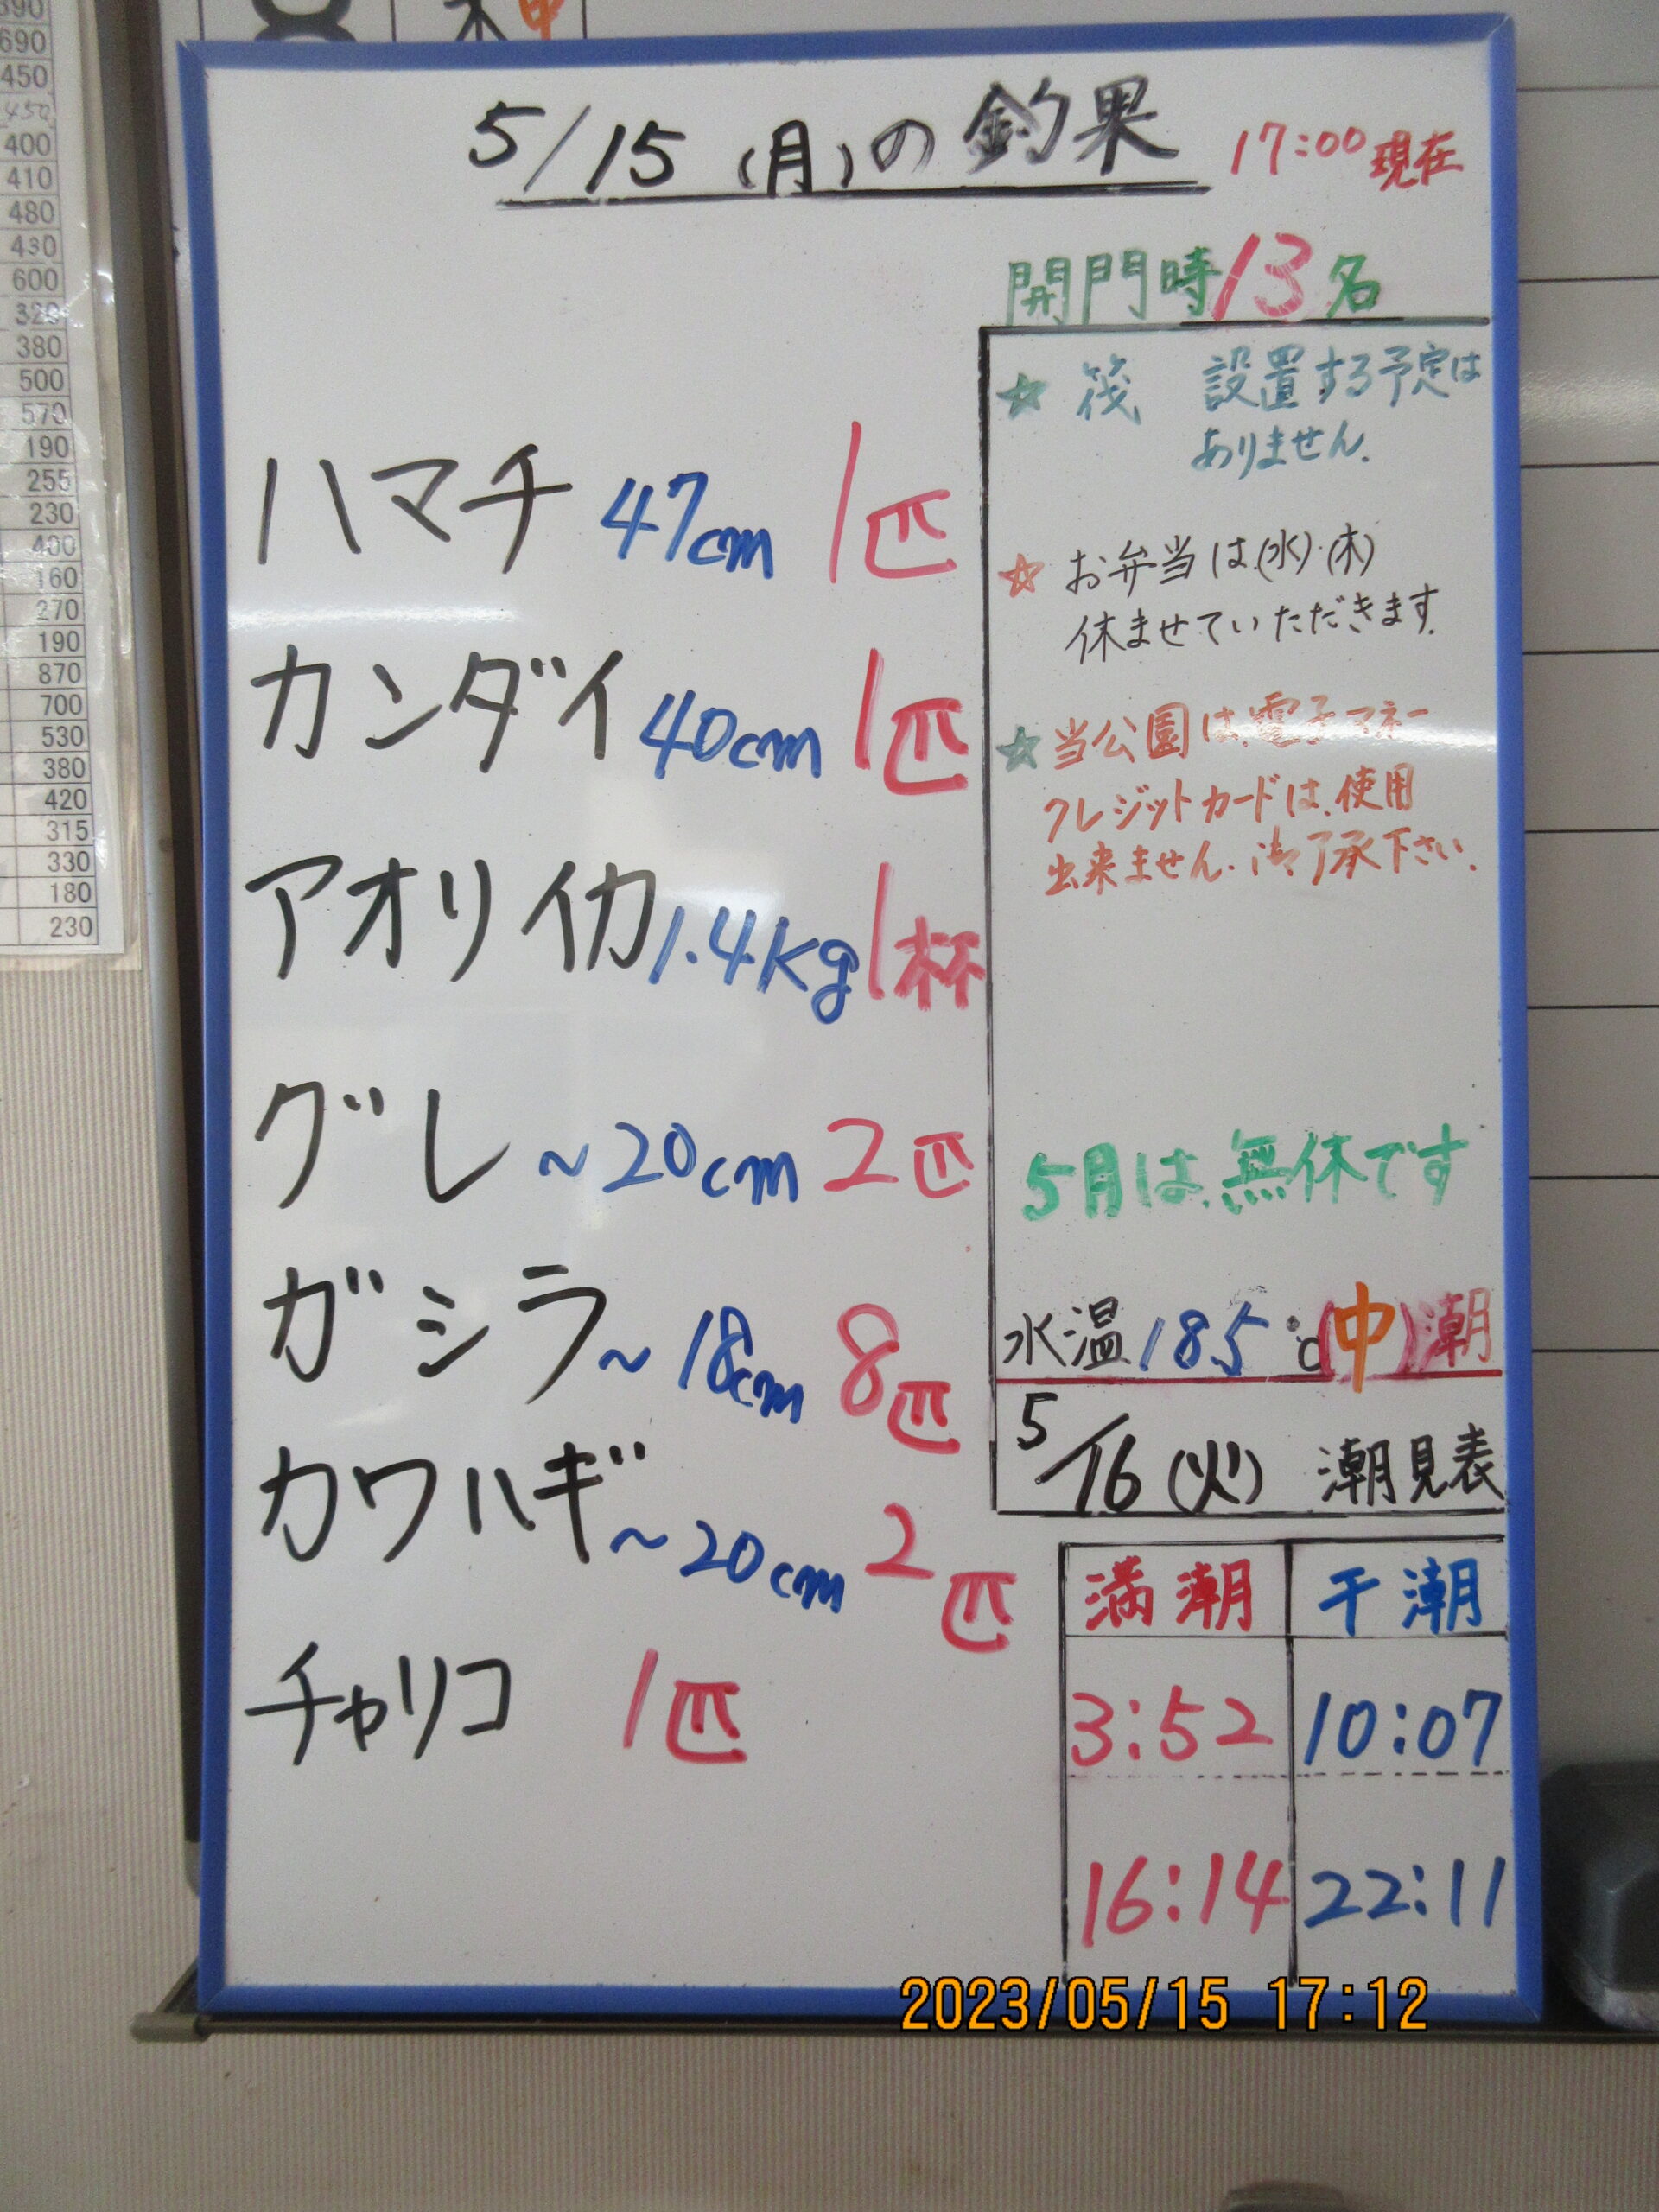 5/15(月)の釣果 17:00現在
開門時13名
☆ 筏 設置する予定は
ありません.
☆ お弁当は(水)・(木)
休ませていただきます.
☆ 当公園は、電子マネー
クレジットカードは、使用
出来ません. 御了承下さい.
5月は、無休です
水温18.5℃(中)潮
ハマチ 47cm 1匹
カンダイ 40cm 1匹
アオリイカ 1.4kg 1杯
グレ ~20cm 2匹
ガシラ ~18cm 8匹
カワハギ ~20cm 2匹
チャリコ 1匹
5/16(火) 潮見表
満潮 干潮
3:52 10:07
16:14 22:11
2023/05/15 17:12
690
450
450
400
410
480
430
600
320
380
500
570
190
255
230
400
160
270
190
870
700
530
380
420
315
330
180
230